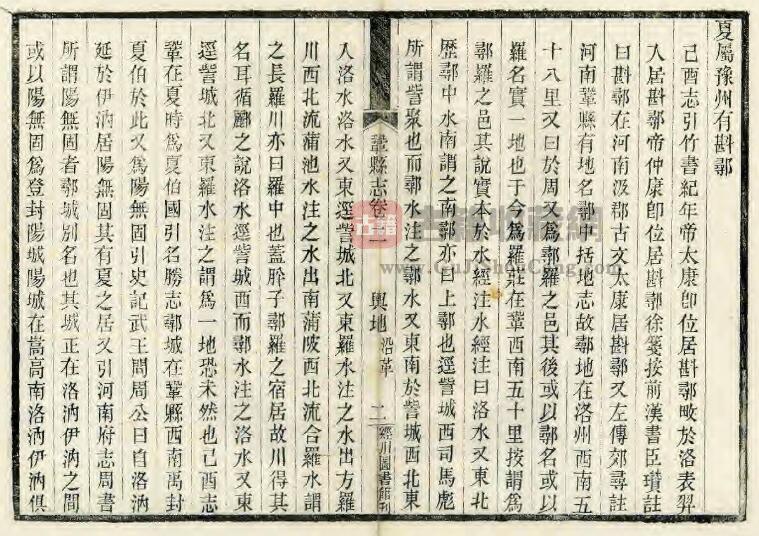 夏屬豫州有斟鄩
己酉志引竹書紀年帝太康卽位居斟鄩畋於洛表羿
入居斟鄩帝仲康卽位居斟鄩徐箋按前漢書臣瓚註
曰斟鄩在河南汲郡古文太康居斟鄩又左傳郊尋註
河南鞏縣有地名鄩中括地志故鄩地在洛州西南五
十八里又曰於周又爲鄩羅之邑其後或以鄩名或以
羅名實一地也于今爲羅莊在鞏西南五十里按謂爲
鄩羅之邑其說實本於水經注水經注曰洛水又東北
歷鄩中水南謂之南鄩亦曰上鄩也逕訾城西司馬彪
所謂訾聚也而鄩水注之鄩水又東南於訾城西北東
入洛水洛水又東逕訾城北又東羅水注之水出方羅
川西北流蒲池水注之水出南蒲陂西北流合羅水謂
之長羅川亦曰羅中也蓋肸子鄩羅之宿居故川得其
名耳循酈之說洛水逕訾城西而鄩水注之洛水又東
逕訾城北又東羅水注之謂爲一地恐未然也己酉志
鞏在夏時爲夏伯國引名勝志鄩城在鞏縣西南禹封
夏伯於此又爲陽無固引史記武王問周公曰自洛汭
延於伊汭居陽無固其有夏之居又引河南府志周書
所謂陽無固者鄩城別名也其城正在洛汭伊汭之間
或以陽無固爲登封陽城陽城在嵩高南洛汭伊汭俱
鞏縣志卷二 輿地 沿革 二 經川圖書館刊
古籍
古籍收藏網
www.GuJiShouCang.com